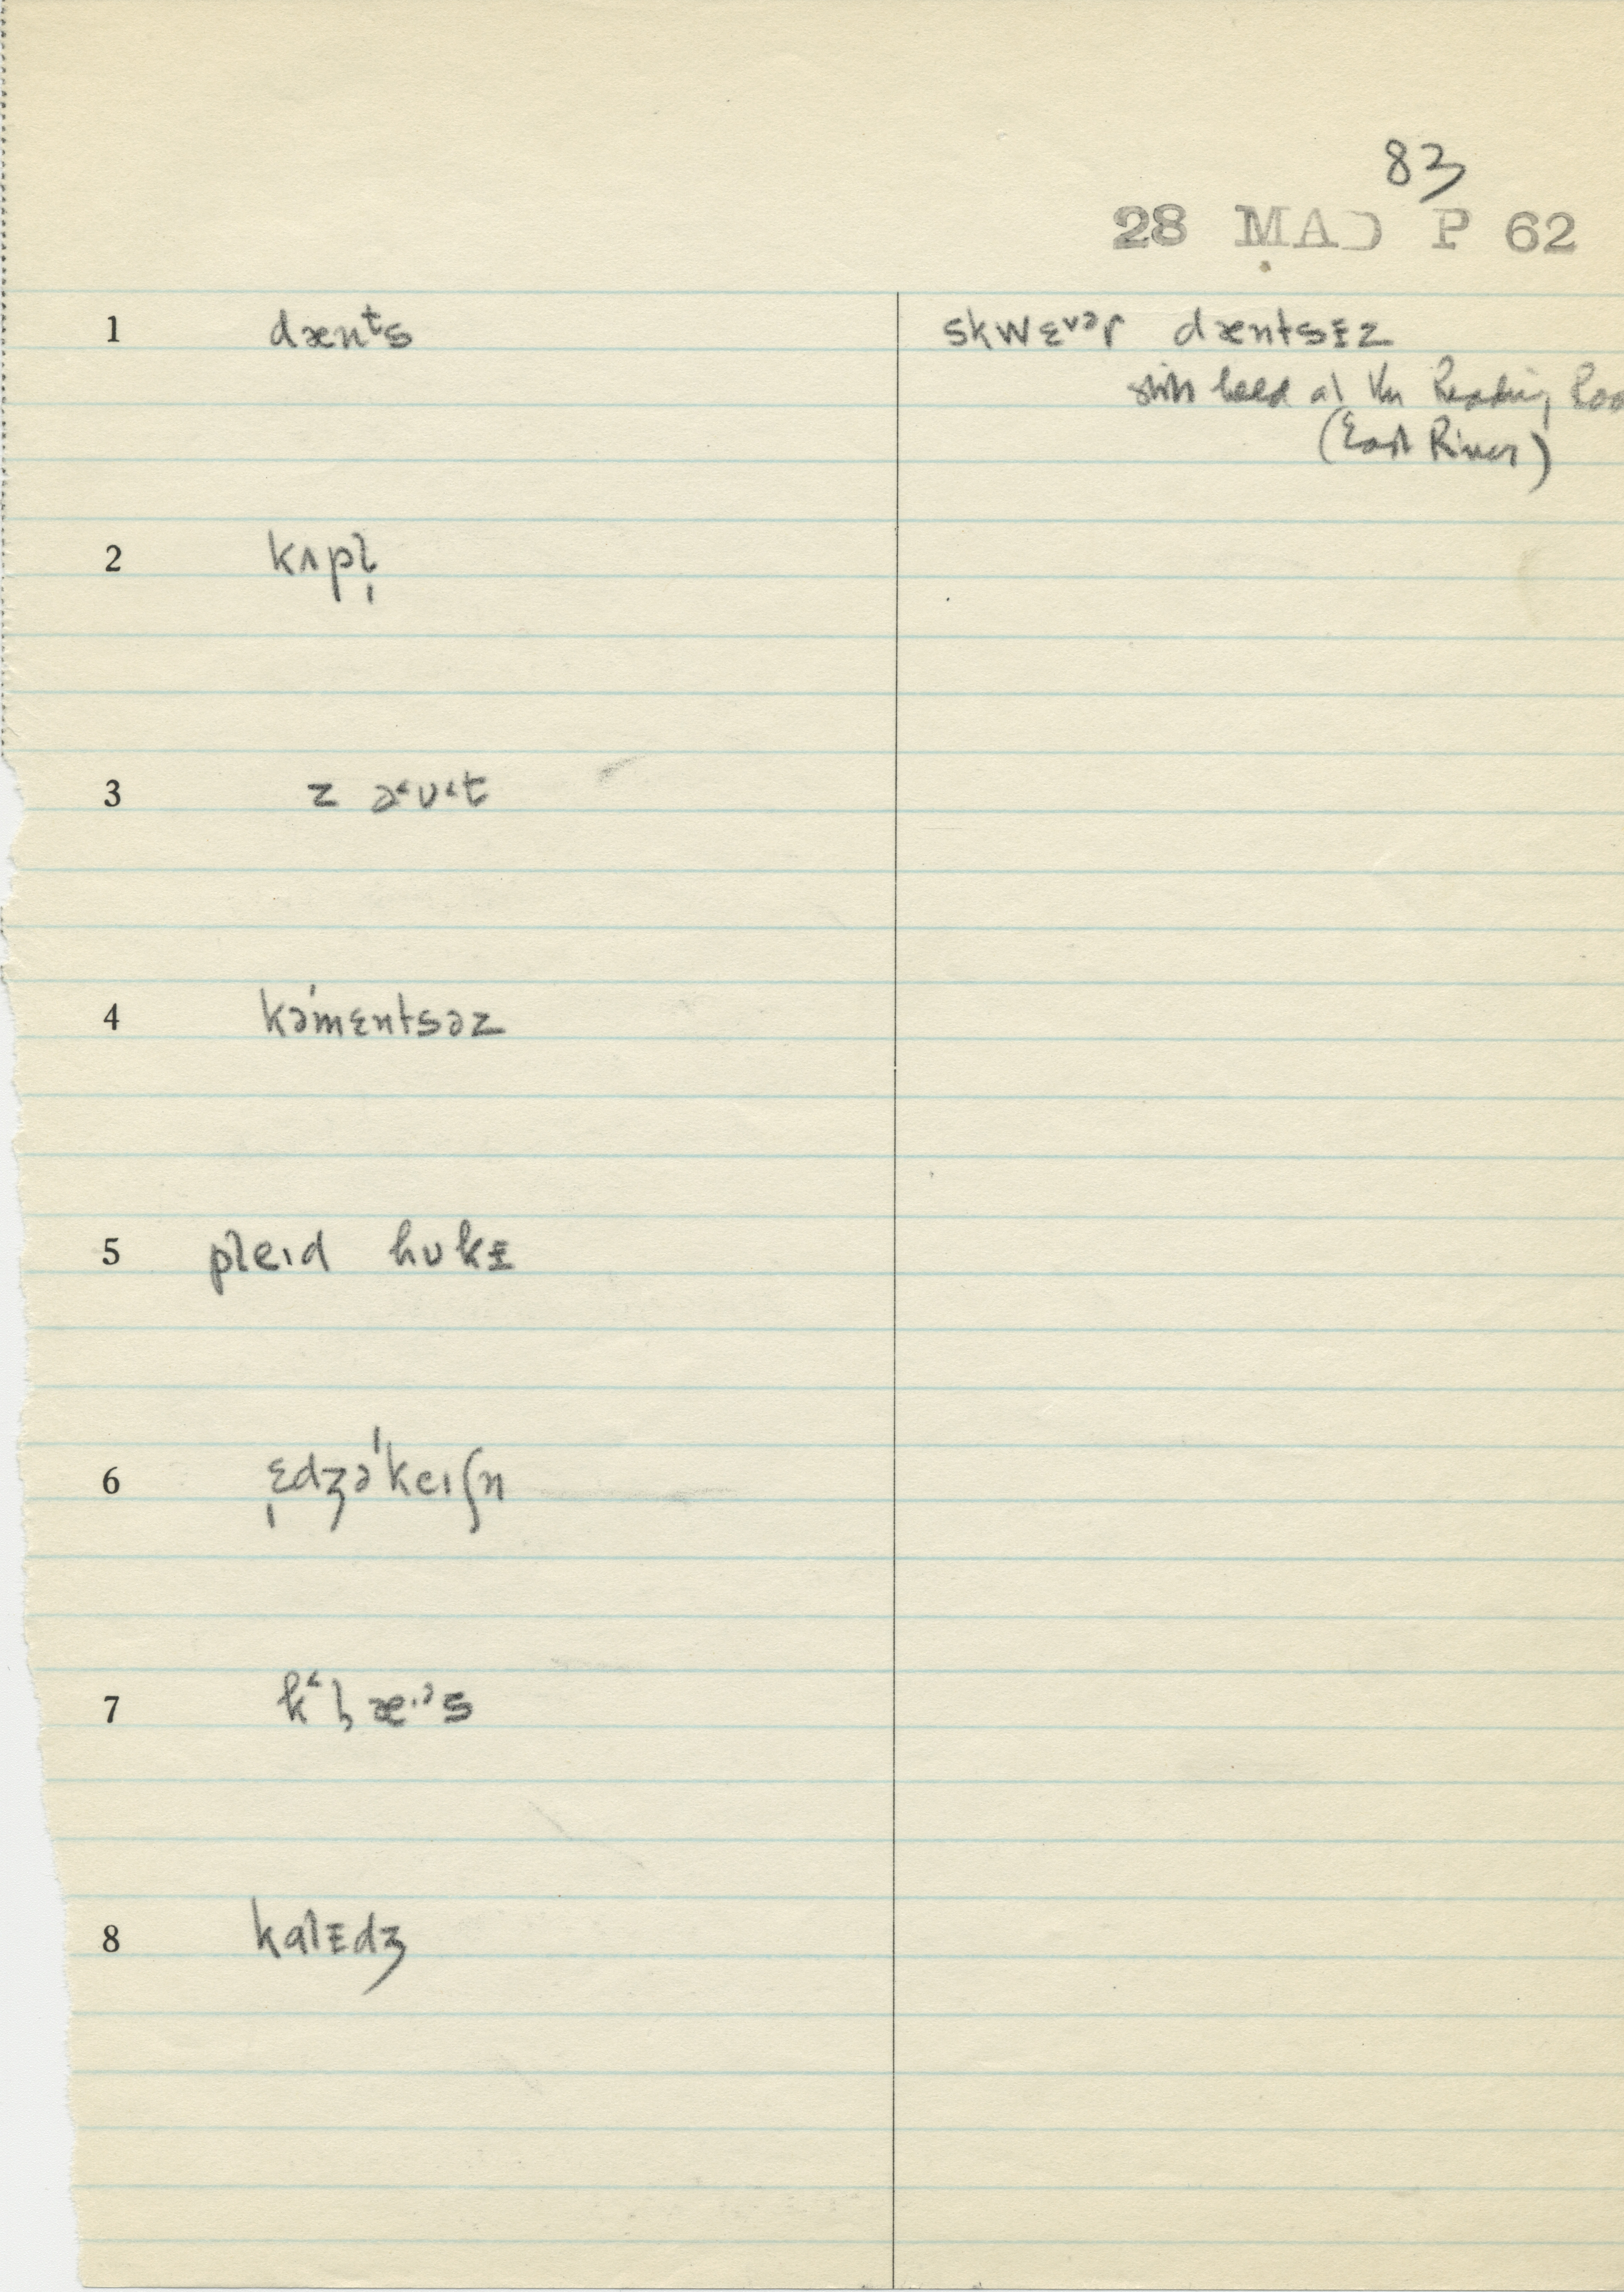 83
28 MAD P 62
1 dænᵗs skwɛᵛᵊr dæntsɪz
still held at the Reading Roo
(East River)
2 kʌpl̩
3 z ə˂ʊ˂t
4 kə'mɛntsəz
5 pleɪd hʊkɪ
6 ˌɛdʒə'keɪʃn
7 k˂l̥æ·ᵊs
8 kalɪdʒ